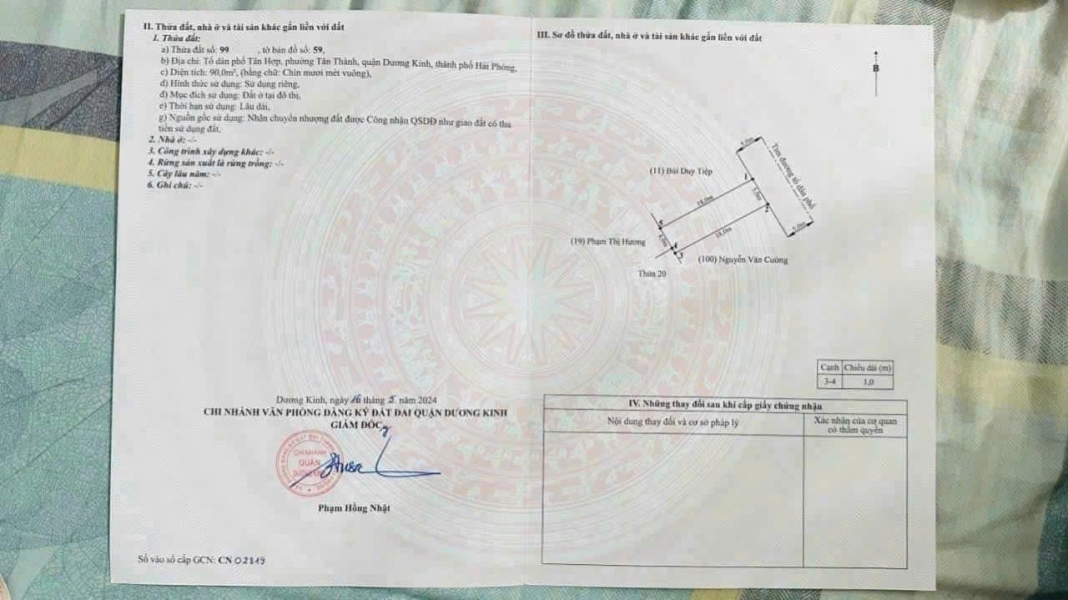 II. Thửa đất, nhà ở và tài sản khác gắn liền với đất
1. Thửa đất:
a) Thửa đất số: 99 , tờ bản đồ số: 59,
b) Địa chỉ: Tổ dân phố Tân Hợp, phường Tân Thành, quận Dương Kinh, thành phố Hải Phòng,
c) Diện tích: 90,0m², (bằng chữ: Chín mươi mét vuông),
d) Hình thức sử dụng: Sử dụng riêng,
đ) Mục đích sử dụng: Đất ở tại đô thị,
e) Thời hạn sử dụng: Lâu dài,
g) Nguồn gốc sử dụng: Nhận chuyển nhượng đất được Công nhận QSDĐ như giao đất có thu
tiền sử dụng đất,
2. Nhà ở: -/-
3. Công trình xây dựng khác: -/-
4. Rừng sản xuất là rừng trồng: -/-
5. Cây lâu năm: -/-
6. Ghi chú: -/-
Dương Kinh, ngày 16 tháng 5 năm 2024
CHI NHÁNH VĂN PHÒNG ĐĂNG KÝ ĐẤT ĐAI QUẬN DƯƠNG KINH
GIÁM ĐỐC
CHI NHÁNH
QUẬN
Phạm Hồng Nhật
Số vào sổ cấp GCN: CN 02819
III. Sơ đồ thửa đất, nhà ở và tài sản khác gắn liền với đất
B
Tim đường tổ dân phố
(11) Bùi Duy Tiệp
1
18,0m
5,0m
2
5
18,0m
(19) Phạm Thị Hương
4
3
(100) Nguyễn Văn Cường
Thửa 20
Cạnh Chiều dài (m)
3-4 1,0
IV. Những thay đổi sau khi cấp giấy chứng nhận
Nội dung thay đổi và cơ sở pháp lý
Xác nhận của cơ quan
có thẩm quyền